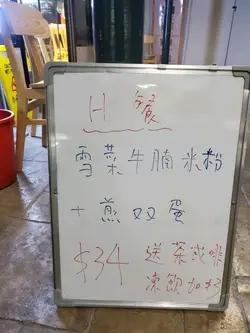 H 餐
雪菜牛腩米粉
+ 煎双蛋
$34 送茶或啡
凍飲加$3